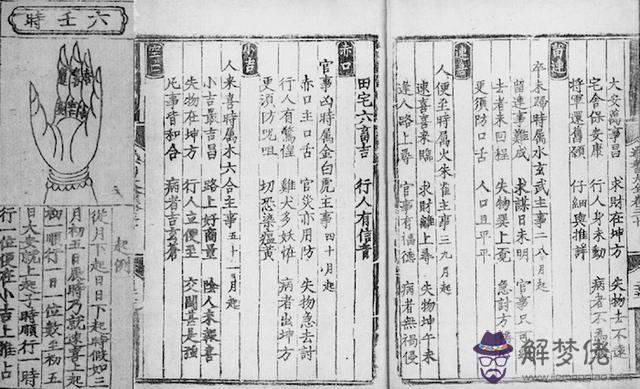 六壬時
起例
從月下起日日下起時假如三
月初五日辰時乃就速喜上起
初一順行一日一位數至初五
日大安就上起子時順行一時
行一位便在小吉上推占
大安萬事昌 求財在坤方 失物去不遠
宅舍保安康 行人身未動 病者不
將軍還舊願 仔細與推詳
留連
卒未歸時屬水玄武主事二八月起
留連事難成 求謀日未明 官事只可
去者未回程 失物巽上覓 急討方
更須防口舌 人口且平平
速喜
人便至時屬火朱雀主事三九月起
速喜喜來臨 求財離上尋 失物坤午未
逢人路上尋 官事有福德 病者無禍侵
田宅六畜吉 行人有信音
赤口
官事凶時屬金白虎主事四十月起
赤口主口舌 官災亦用防 失物急去討
行人有驚惶 雞犬多妖怪 病者出坤方
更須防咒咀 切恐染瘟黃
小吉
人來喜時屬木六合主事五十一月起
小吉最吉昌 路上好商量 陰人來報喜
失物在坤方 行人立便至 交關甚是強
凡事皆和合 病者
空亡
解梦佬